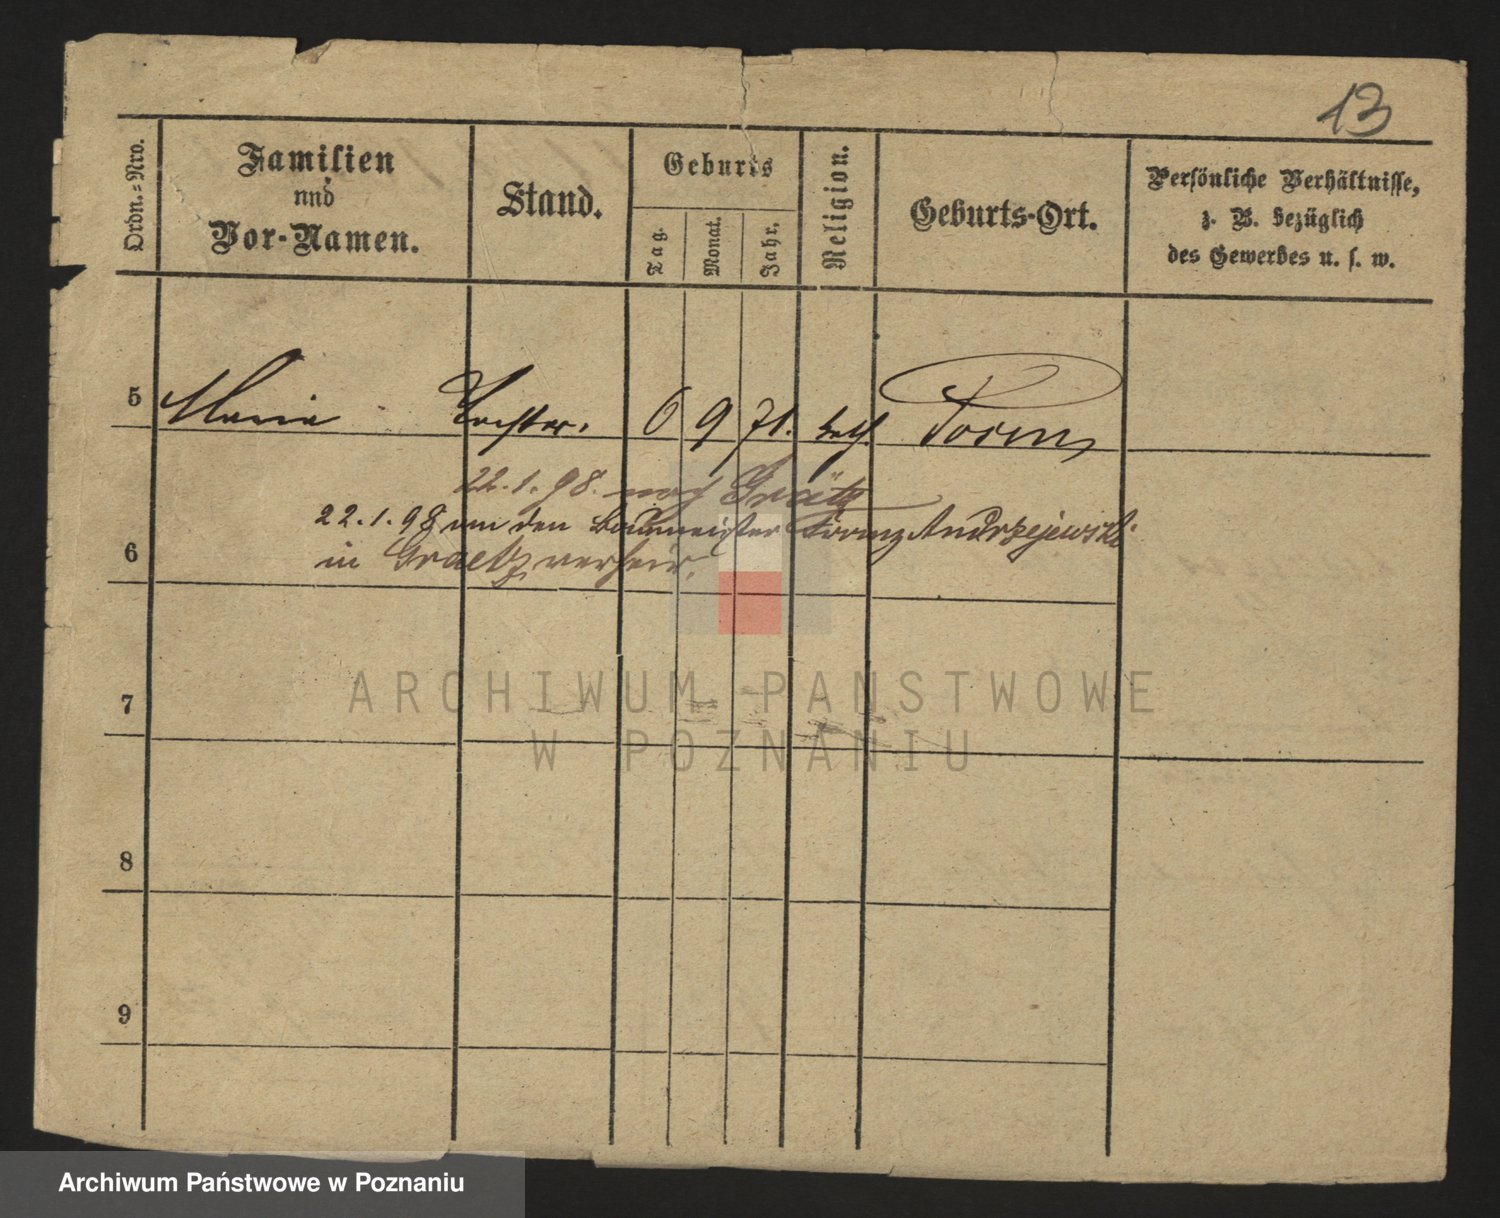 13
Ordn.=Nro.
Familien
und
Vor-Namen.
Stand.
Geburts
Tag.
Monat.
Jahr.
Religion.
Geburts-Ort.
Persönliche Verhältnisse,
z. B. bezüglich
des Gewerbes u. s. w.
5 Maria Tochter. 6 9 71. kath. Posen
22.1.98. nach Grätz
22.1.98 an den Baumeister Franz Andrzejewski
6 in Graetz verheir.
7
8
9
ARCHIWUM PAŃSTWOWE
W POZNANIU
Archiwum Państwowe w Poznaniu